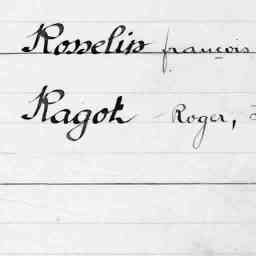 Rosselin françois
Ragot Roger,